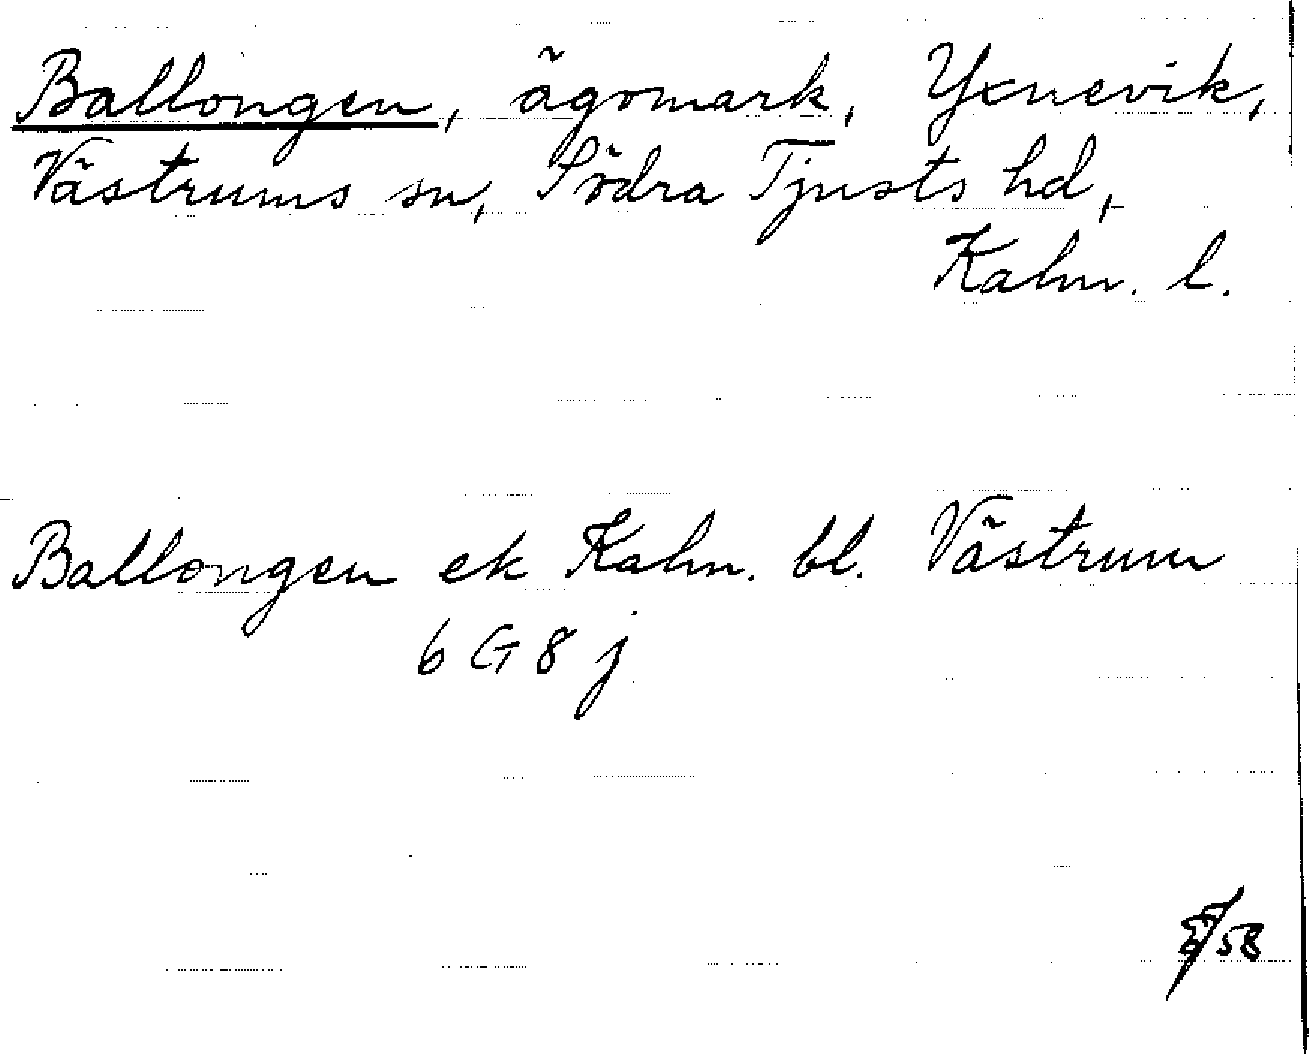 Ballongen, ägomark, Yxnevik,
Västrums sn, Södra Tjusts hd,
Kalm. l.
Ballongen ek Kalm. bl. Västrum
6 G 8 j
58